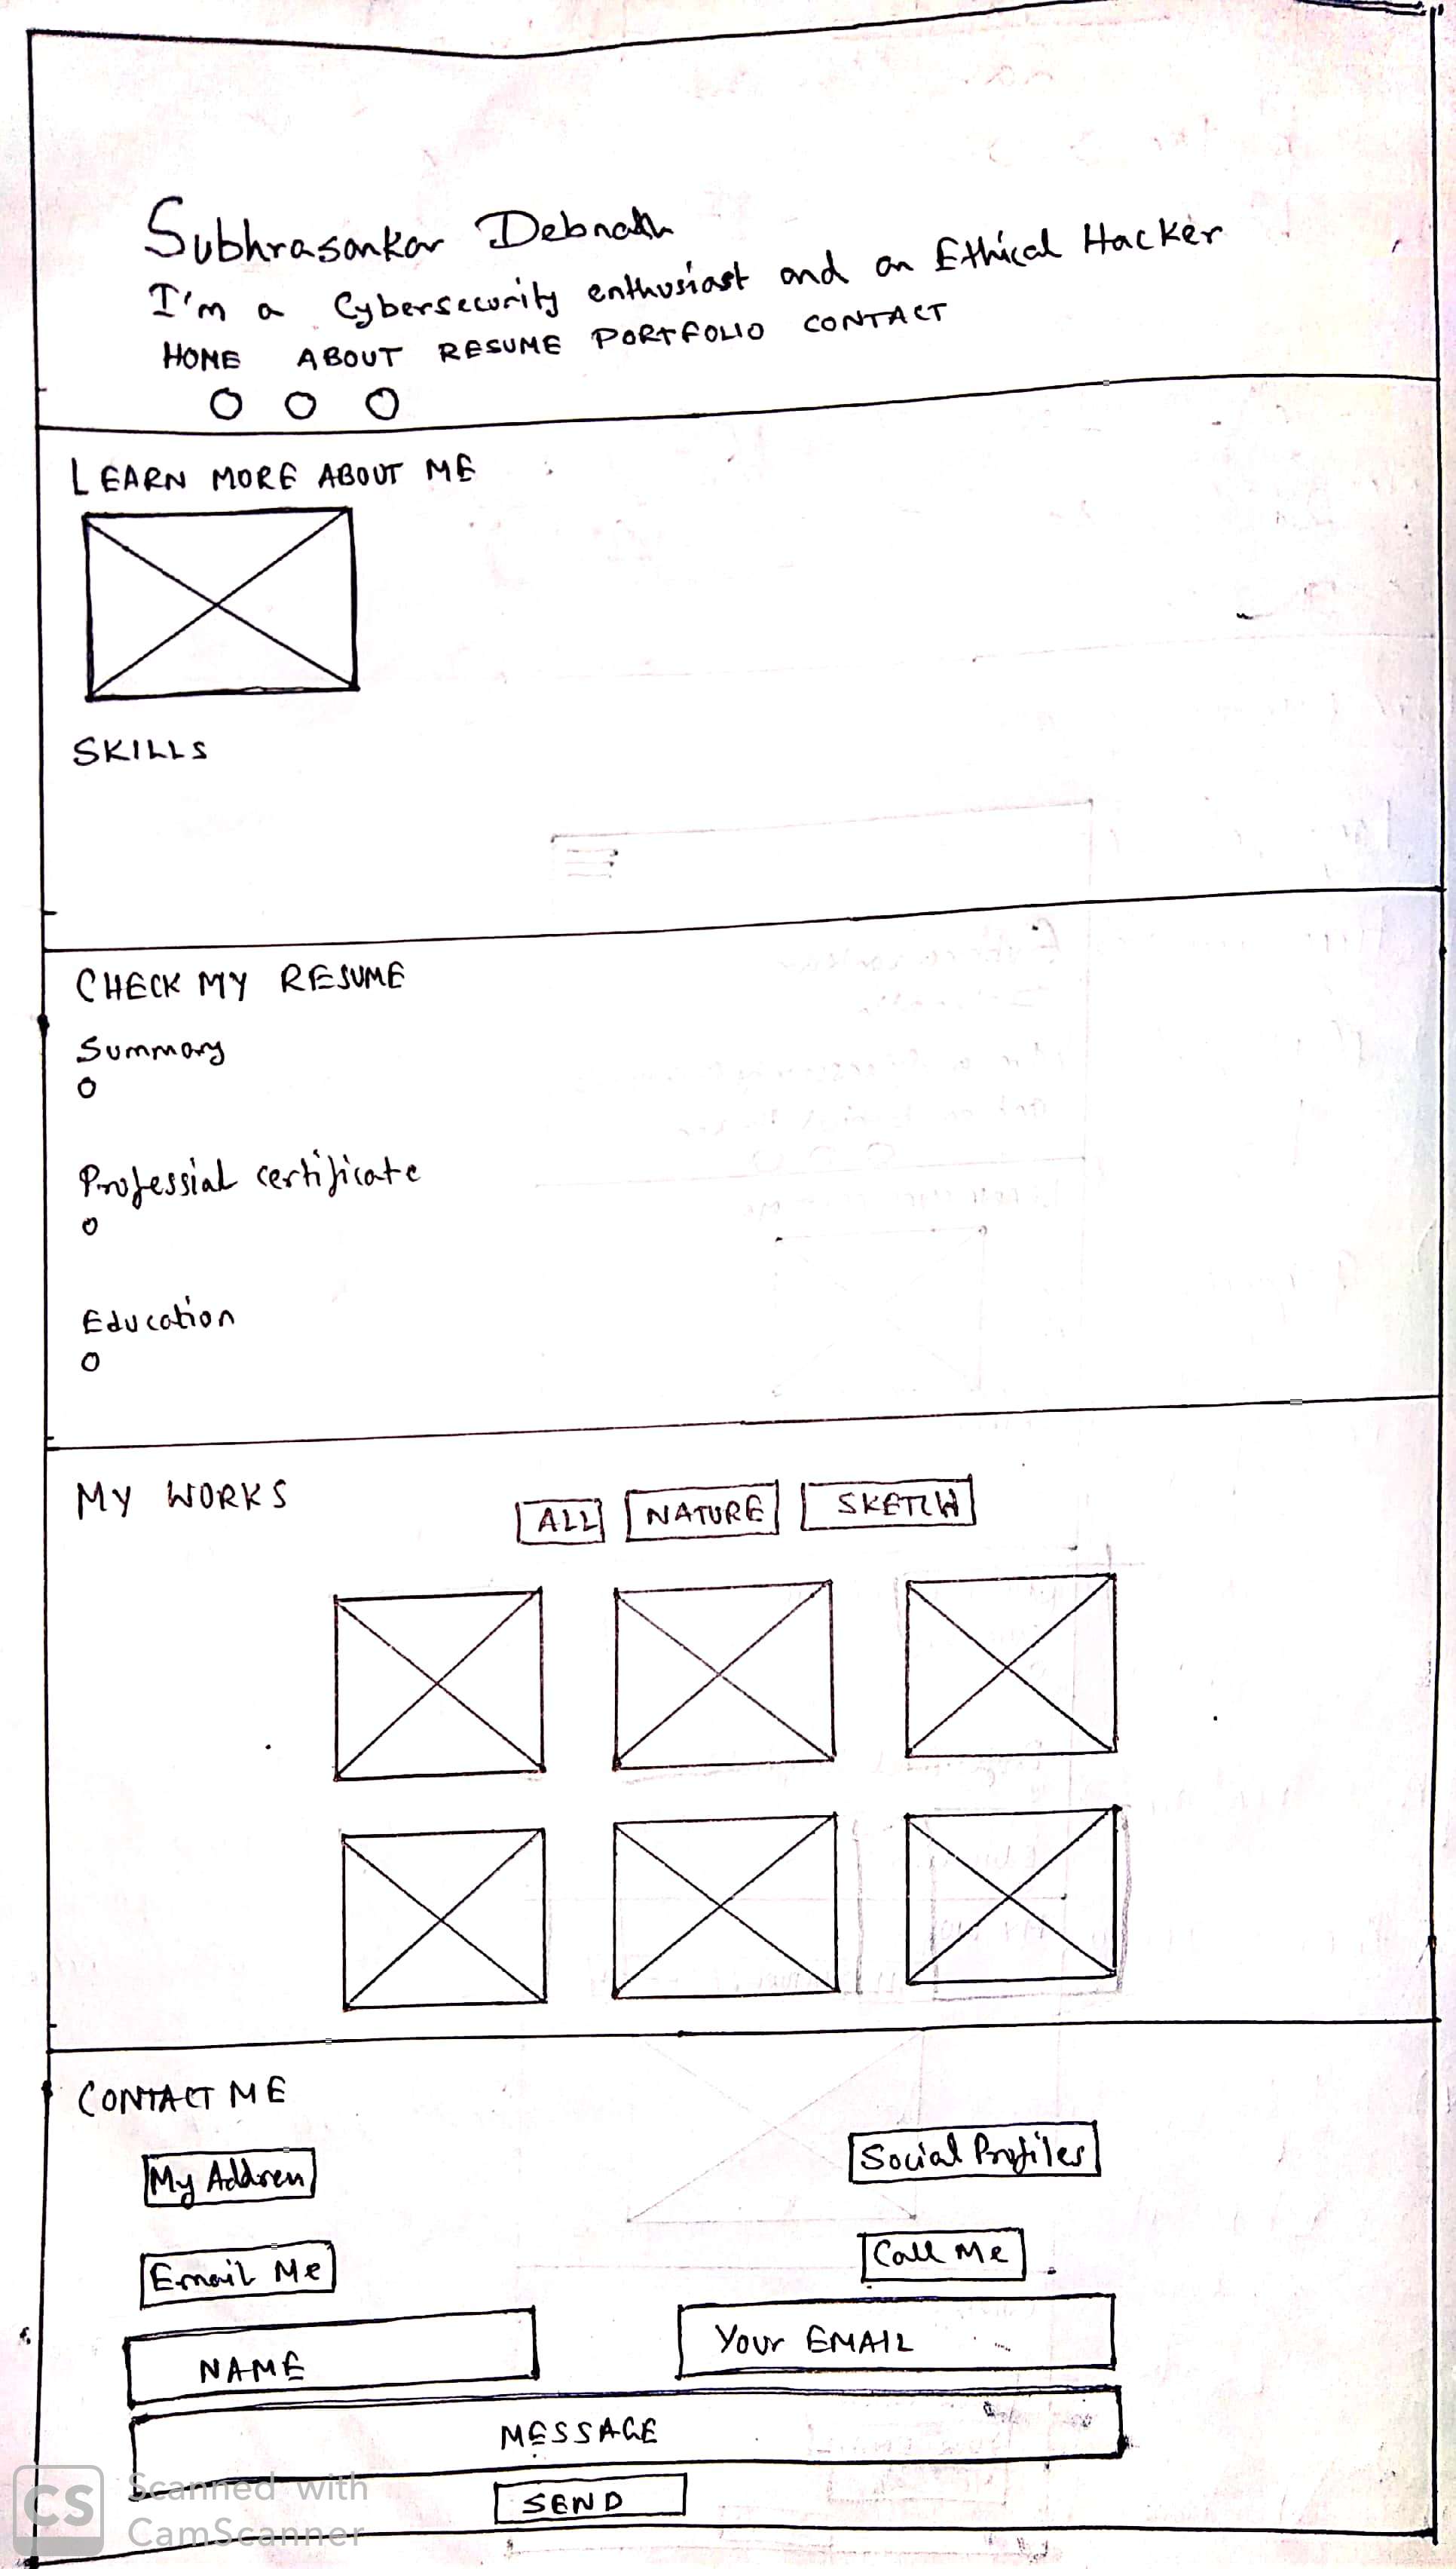 Subhrasankar Debnath
I'm a Cybersecurity enthusiast and an Ethical Hacker
HOME ABOUT RESUME PORTFOLIO CONTACT
LEARN MORE ABOUT ME
SKILLS
CHECK MY RESUME
Summary
Professial certificate
Education
MY WORKS
ALL NATURE SKETCH
CONTACT ME
My Address Social Profiles
Email Me Call Me
NAME Your EMAIL
MESSAGE
SEND
CS Scanned with
CamScanner